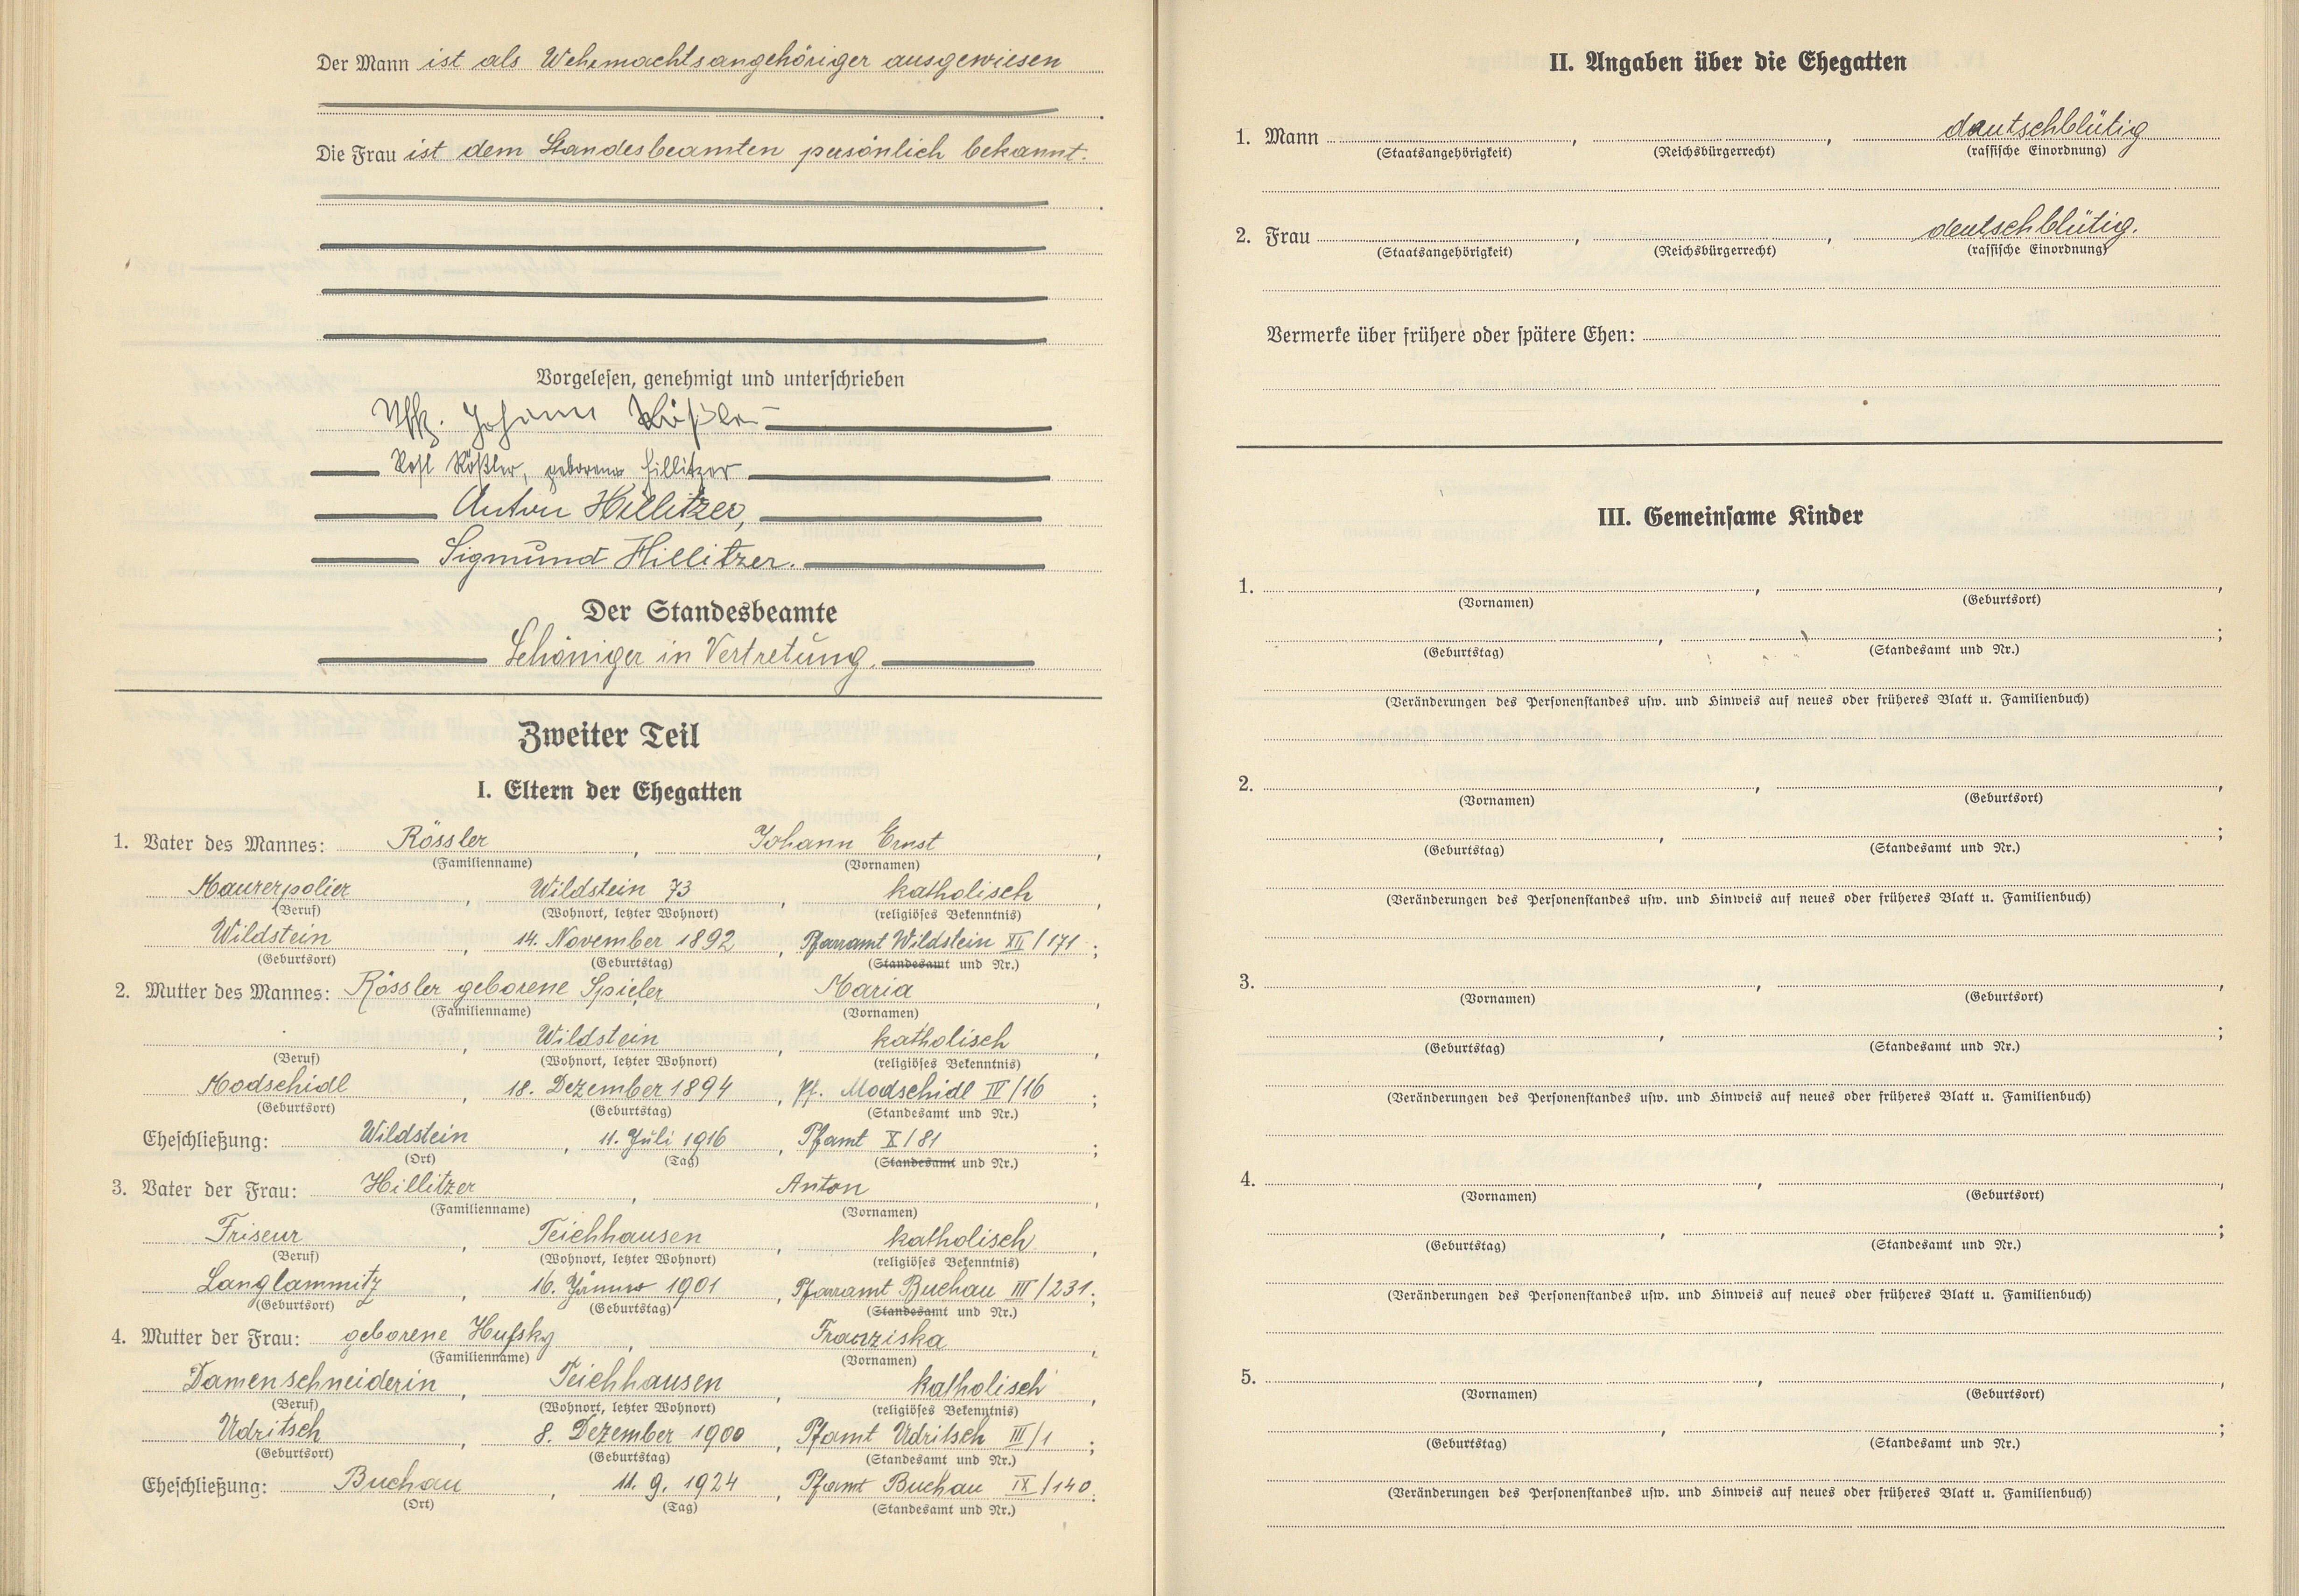 Der Mann ist als Wehrmachtsangehöriger ausgewiesen
Die Frau ist dem Standesbeamten persönlich bekannt.
Vorgelesen, genehmigt und unterschrieben
Uffz. Johann Rößler
Rosl Rößler, geborene Hillitzer
Anton Hillitzer,
Sigmund Hillitzer.
Der Standesbeamte
Schöniger in Vertretung.
Zweiter Teil
I. Eltern der Ehegatten
1. Vater des Mannes: Rössler, Johann Ernst,
(Familienname) (Vornamen)
Maurerpolier, Wildstein 73, katholisch,
(Beruf) (Wohnort, letzter Wohnort) (religiöses Bekenntnis)
Wildstein, 14. November 1892, Pfarramt Wildstein XII/171;
(Geburtsort) (Geburtstag) (Standesamt und Nr.)
2. Mutter des Mannes: Rössler geborene Spieler Maria,
(Familienname) (Vornamen)
, Wildstein, katholisch,
(Beruf) (Wohnort, letzter Wohnort) (religiöses Bekenntnis)
Modschidl, 18. Dezember 1894, Pf. Modschidl IV/16;
(Geburtsort) (Geburtstag) (Standesamt und Nr.)
Eheschließung: Wildstein, 11. Juli 1916, Pfamt X/81;
(Ort) (Tag) (Standesamt und Nr.)
3. Vater der Frau: Hillitzer, Anton,
(Familienname) (Vornamen)
Friseur, Teichhausen, katholisch,
(Beruf) (Wohnort, letzter Wohnort) (religiöses Bekenntnis)
Langlammitz, 16. Jänner 1901, Pfarramt Buchau III/231;
(Geburtsort) (Geburtstag) (Standesamt und Nr.)
4. Mutter der Frau: geborene Hufsky, Franziska,
(Familienname) (Vornamen)
Damenschneiderin, Teichhausen, katholisch,
(Beruf) (Wohnort, letzter Wohnort) (religiöses Bekenntnis)
Udritsch, 8. Dezember 1900, Pfamt Udritsch III/1;
(Geburtsort) (Geburtstag) (Standesamt und Nr.)
Eheschließung: Buchau, 11. 9. 1924, Pfamt Buchau IX/140;
(Ort) (Tag) (Standesamt und Nr.)
II. Angaben über die Ehegatten
1. Mann , , deutschblütig
(Staatsangehörigkeit) (Reichsbürgerrecht) (rassische Einordnung)
2. Frau , , deutschblütig.
(Staatsangehörigkeit) (Reichsbürgerrecht) (rassische Einordnung)
Vermerke über frühere oder spätere Ehen:
III. Gemeinsame Kinder
1. , ,
(Vornamen) (Geburtsort)
, ;
(Geburtstag) (Standesamt und Nr.)
(Veränderungen des Personenstandes usw. und Hinweis auf neues oder früheres Blatt u. Familienbuch)
2. , ,
(Vornamen) (Geburtsort)
, ;
(Geburtstag) (Standesamt und Nr.)
(Veränderungen des Personenstandes usw. und Hinweis auf neues oder früheres Blatt u. Familienbuch)
3. , ,
(Vornamen) (Geburtsort)
, ;
(Geburtstag) (Standesamt und Nr.)
(Veränderungen des Personenstandes usw. und Hinweis auf neues oder früheres Blatt u. Familienbuch)
4. , ,
(Vornamen) (Geburtsort)
, ;
(Geburtstag) (Standesamt und Nr.)
(Veränderungen des Personenstandes usw. und Hinweis auf neues oder früheres Blatt u. Familienbuch)
5. , ,
(Vornamen) (Geburtsort)
, ;
(Geburtstag) (Standesamt und Nr.)
(Veränderungen des Personenstandes usw. und Hinweis auf neues oder früheres Blatt u. Familienbuch)